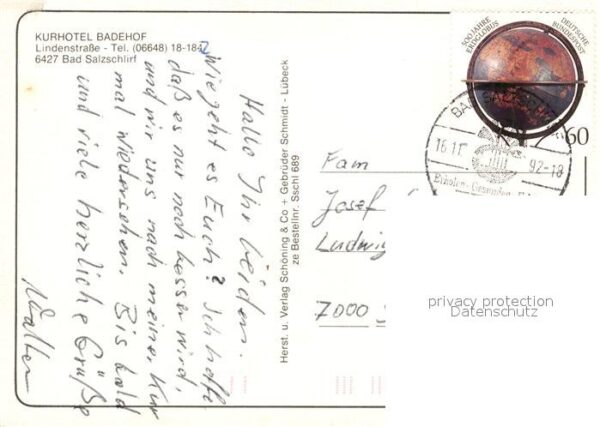 KURHOTEL BADEHOF
Lindenstraße - Tel. (06648) 18-184
6427 Bad Salzschlirf
Hallo Ihr beiden.
Wie geht es Euch? Ich hoffe
daß es nur noch besser wird,
und wir uns nach meiner Kur
mal wiedersehen. Bis bald
und viele herzliche Grüße
Walter
Herst. u. Verlag Schöning & Co + Gebrüder Schmidt - Lübeck
ze Bestellnr. Sschl 689
500 JAHRE
ERDGLOBUS
DEUTSCHE
BUNDESPOST
60
BAD SALZSCHLIRF
16.11
92-18
Fam
Josef
Ludwig
7000
privacy protection
Datenschutz